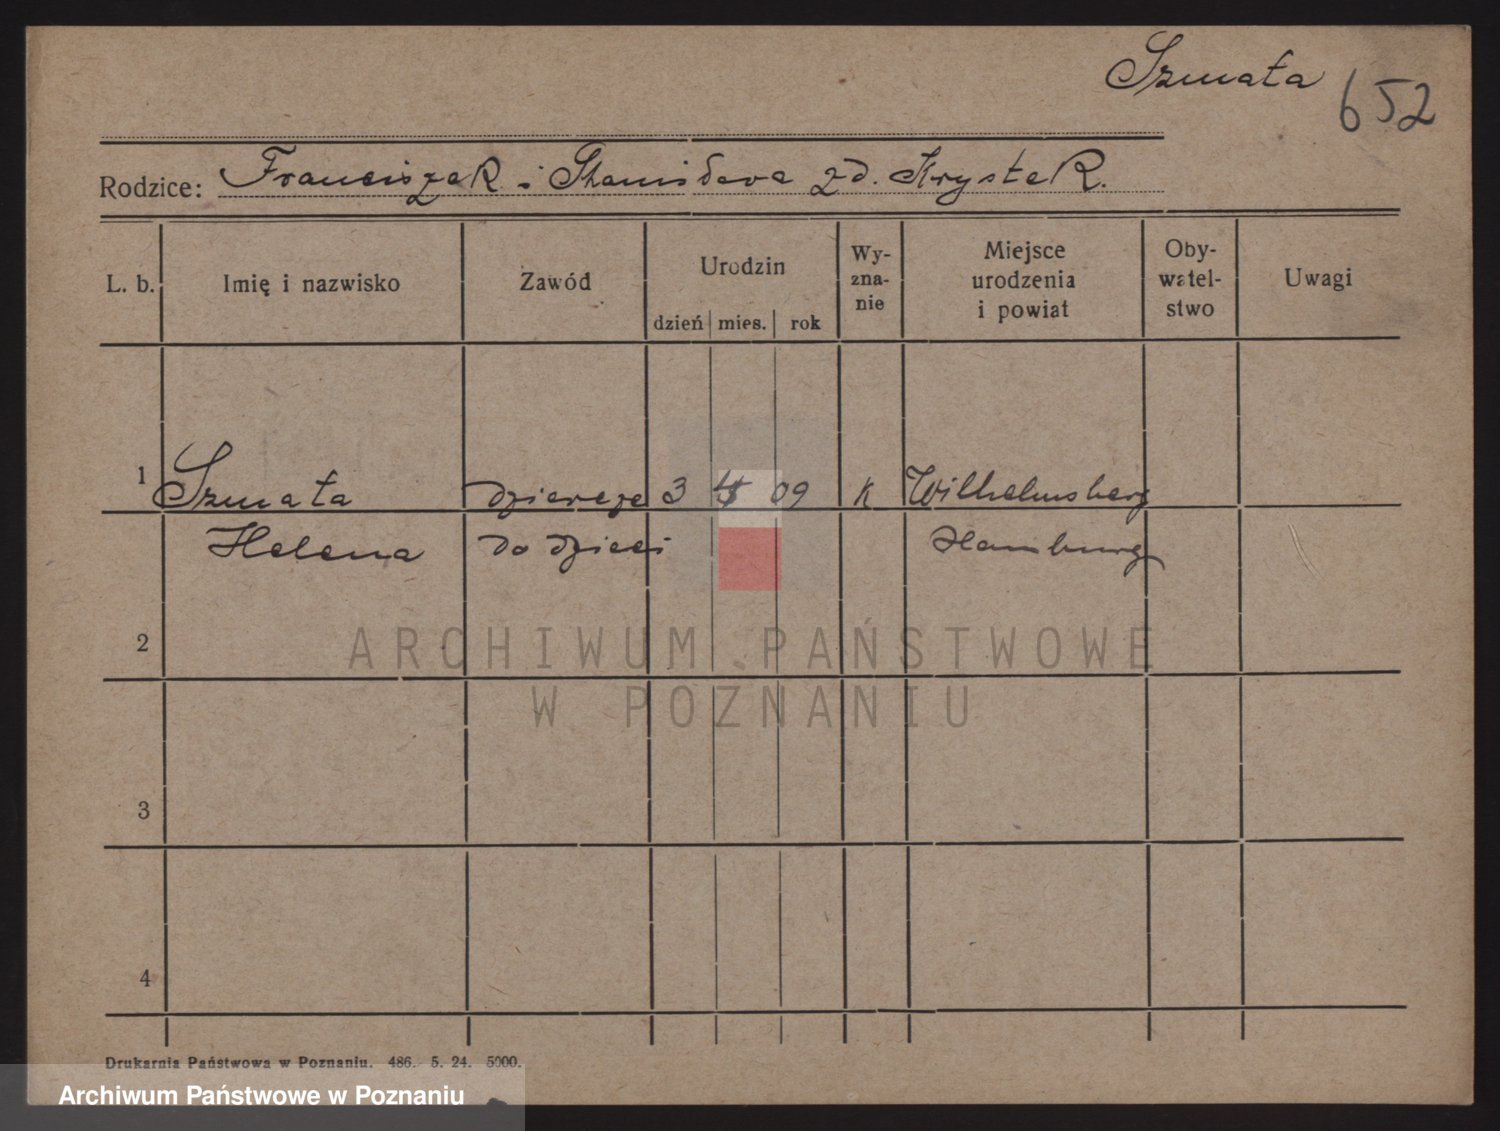 Szmata 652
Rodzice: Franciszek i Stanisława zd. Krystek.
L. b. Imię i nazwisko Zawód Urodzin Wy-zna-nie Miejsce urodzenia i powiat Oby-watel-stwo Uwagi
dzień mies. rok
1 Szmata 3 09 K Wilhelmsberg
Helena do dzieci Hamburg
2
ARCHIWUM PAŃSTWOWE
W POZNANIU
3
4
Drukarnia Państwowa w Poznaniu. 486. 5. 24. 5000.
Archiwum Państwowe w Poznaniu